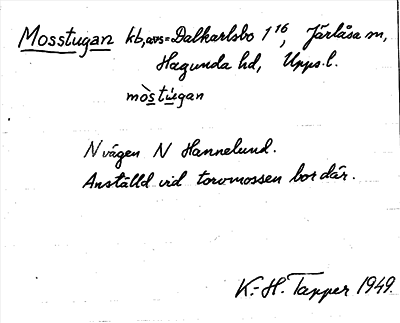 Mosstugan kb, avs=Dalkarlsbo 1¹⁶, Järlåsa sn,
Hagunda hd, Upps.l.
mòstúgan
N vägen N Hannelund.
Anställd vid torvmossen bor där.
K.-H. Tapper 1949.